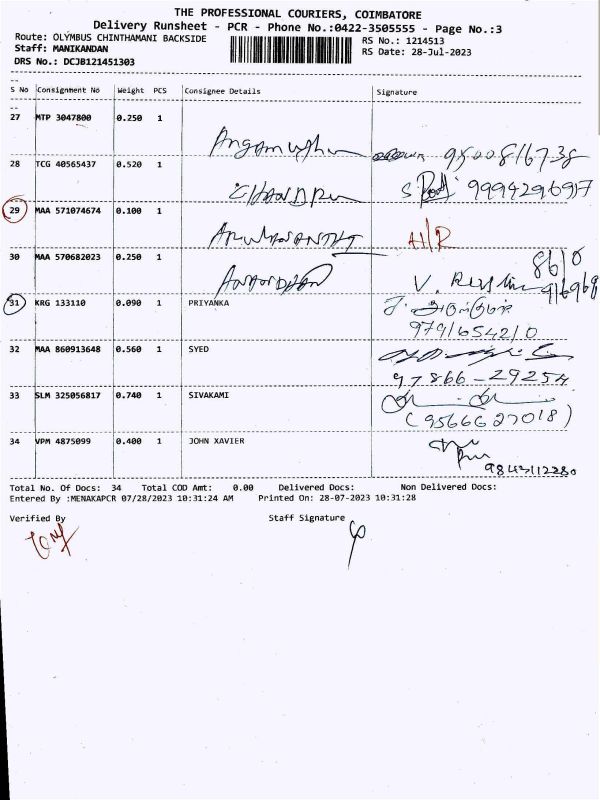 THE PROFESSIONAL COURIERS, COIMBATORE
Delivery Runsheet - PCR - Phone No.:0422-3505555 - Page No.:3
Route: OLYMBUS CHINTHAMANI BACKSIDE
RS No.: 1214513
Staff: MANIKANDAN
RS Date: 28-Jul-2023
DRS No.: DCJB121451303
S No Consignment No Weight PCS Consignee Details Signature
27 MTP 3047800 0.250 1
9500816738
28 TCG 40565437 0.520 1
CHANDRU
9994296917
29 MAA 571074674 0.100 1
H/R
30 MAA 570682023 0.250 1
8610
916968
31 KRG 133110 0.090 1 PRIYANKA
9791654210
32 MAA 860913648 0.560 1 SYED
97866-29254
33 SLM 325056817 0.740 1 SIVAKAMI
(9566627018)
34 VPM 4875099 0.400 1 JOHN XAVIER
9843112280
Total No. Of Docs: 34 Total COD Amt: 0.00 Delivered Docs: Non Delivered Docs:
Entered By :MENAKAPCR 07/28/2023 10:31:24 AM Printed On: 28-07-2023 10:31:28
Verified By Staff Signature